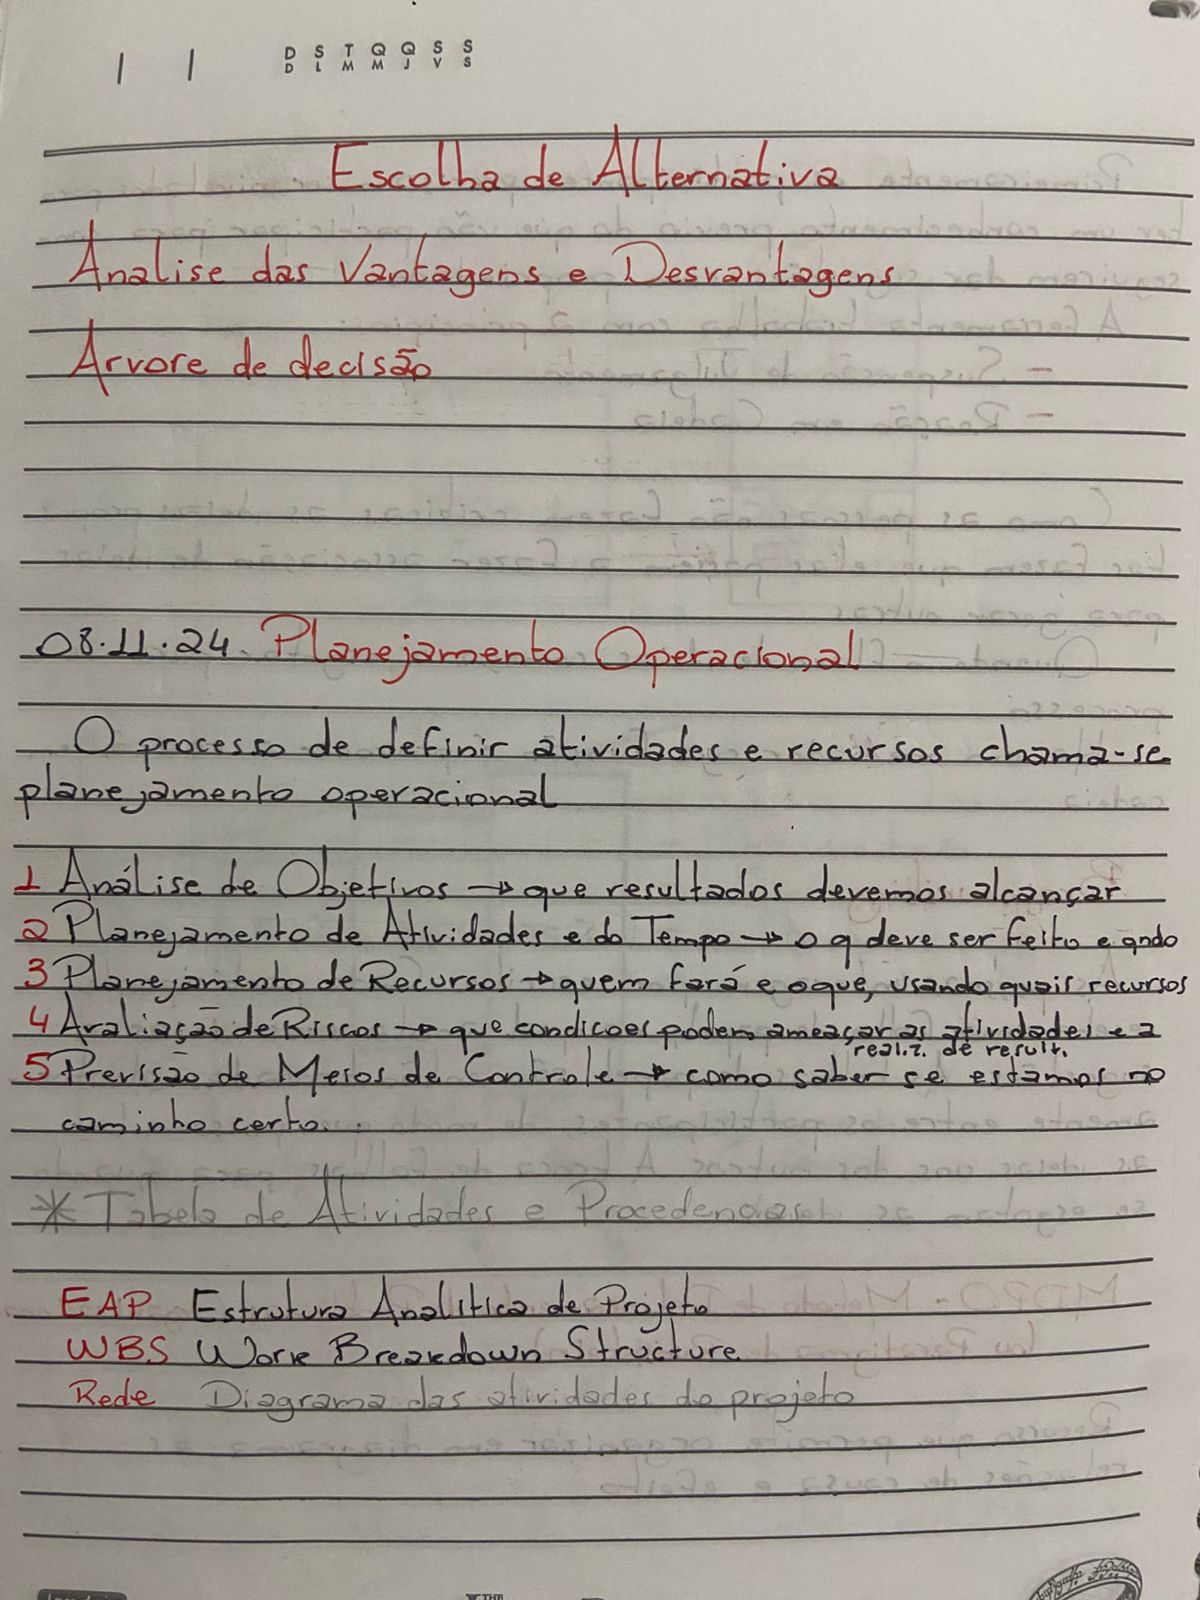 D S T Q Q S S
D L M M J V S
Escolha de Alternativa
Analise das Vantagens e Desvantagens
Arvore de decisão
08.11.24. Planejamento Operacional
O processo de definir atividades e recursos chama-se
planejamento operacional
1 Análise de Objetivos → que resultados devemos alcançar
2 Planejamento de Atividades e do Tempo → o q deve ser feito e qndo
3 Planejamento de Recursos → quem fará e oque, usando quais recursos
4 Avaliação de Riscos → que condicoes podem ameaçar as atividades e a
realiz. de result.
5 Previsão de Meios de Controle → como saber se estamos no
caminho certo.
* Tabela de Atividades e Procedencias
EAP Estrutura Analitica de Projeto
WBS Work Breakdown Structure
Rede Diagrama das atividades do projeto
THE